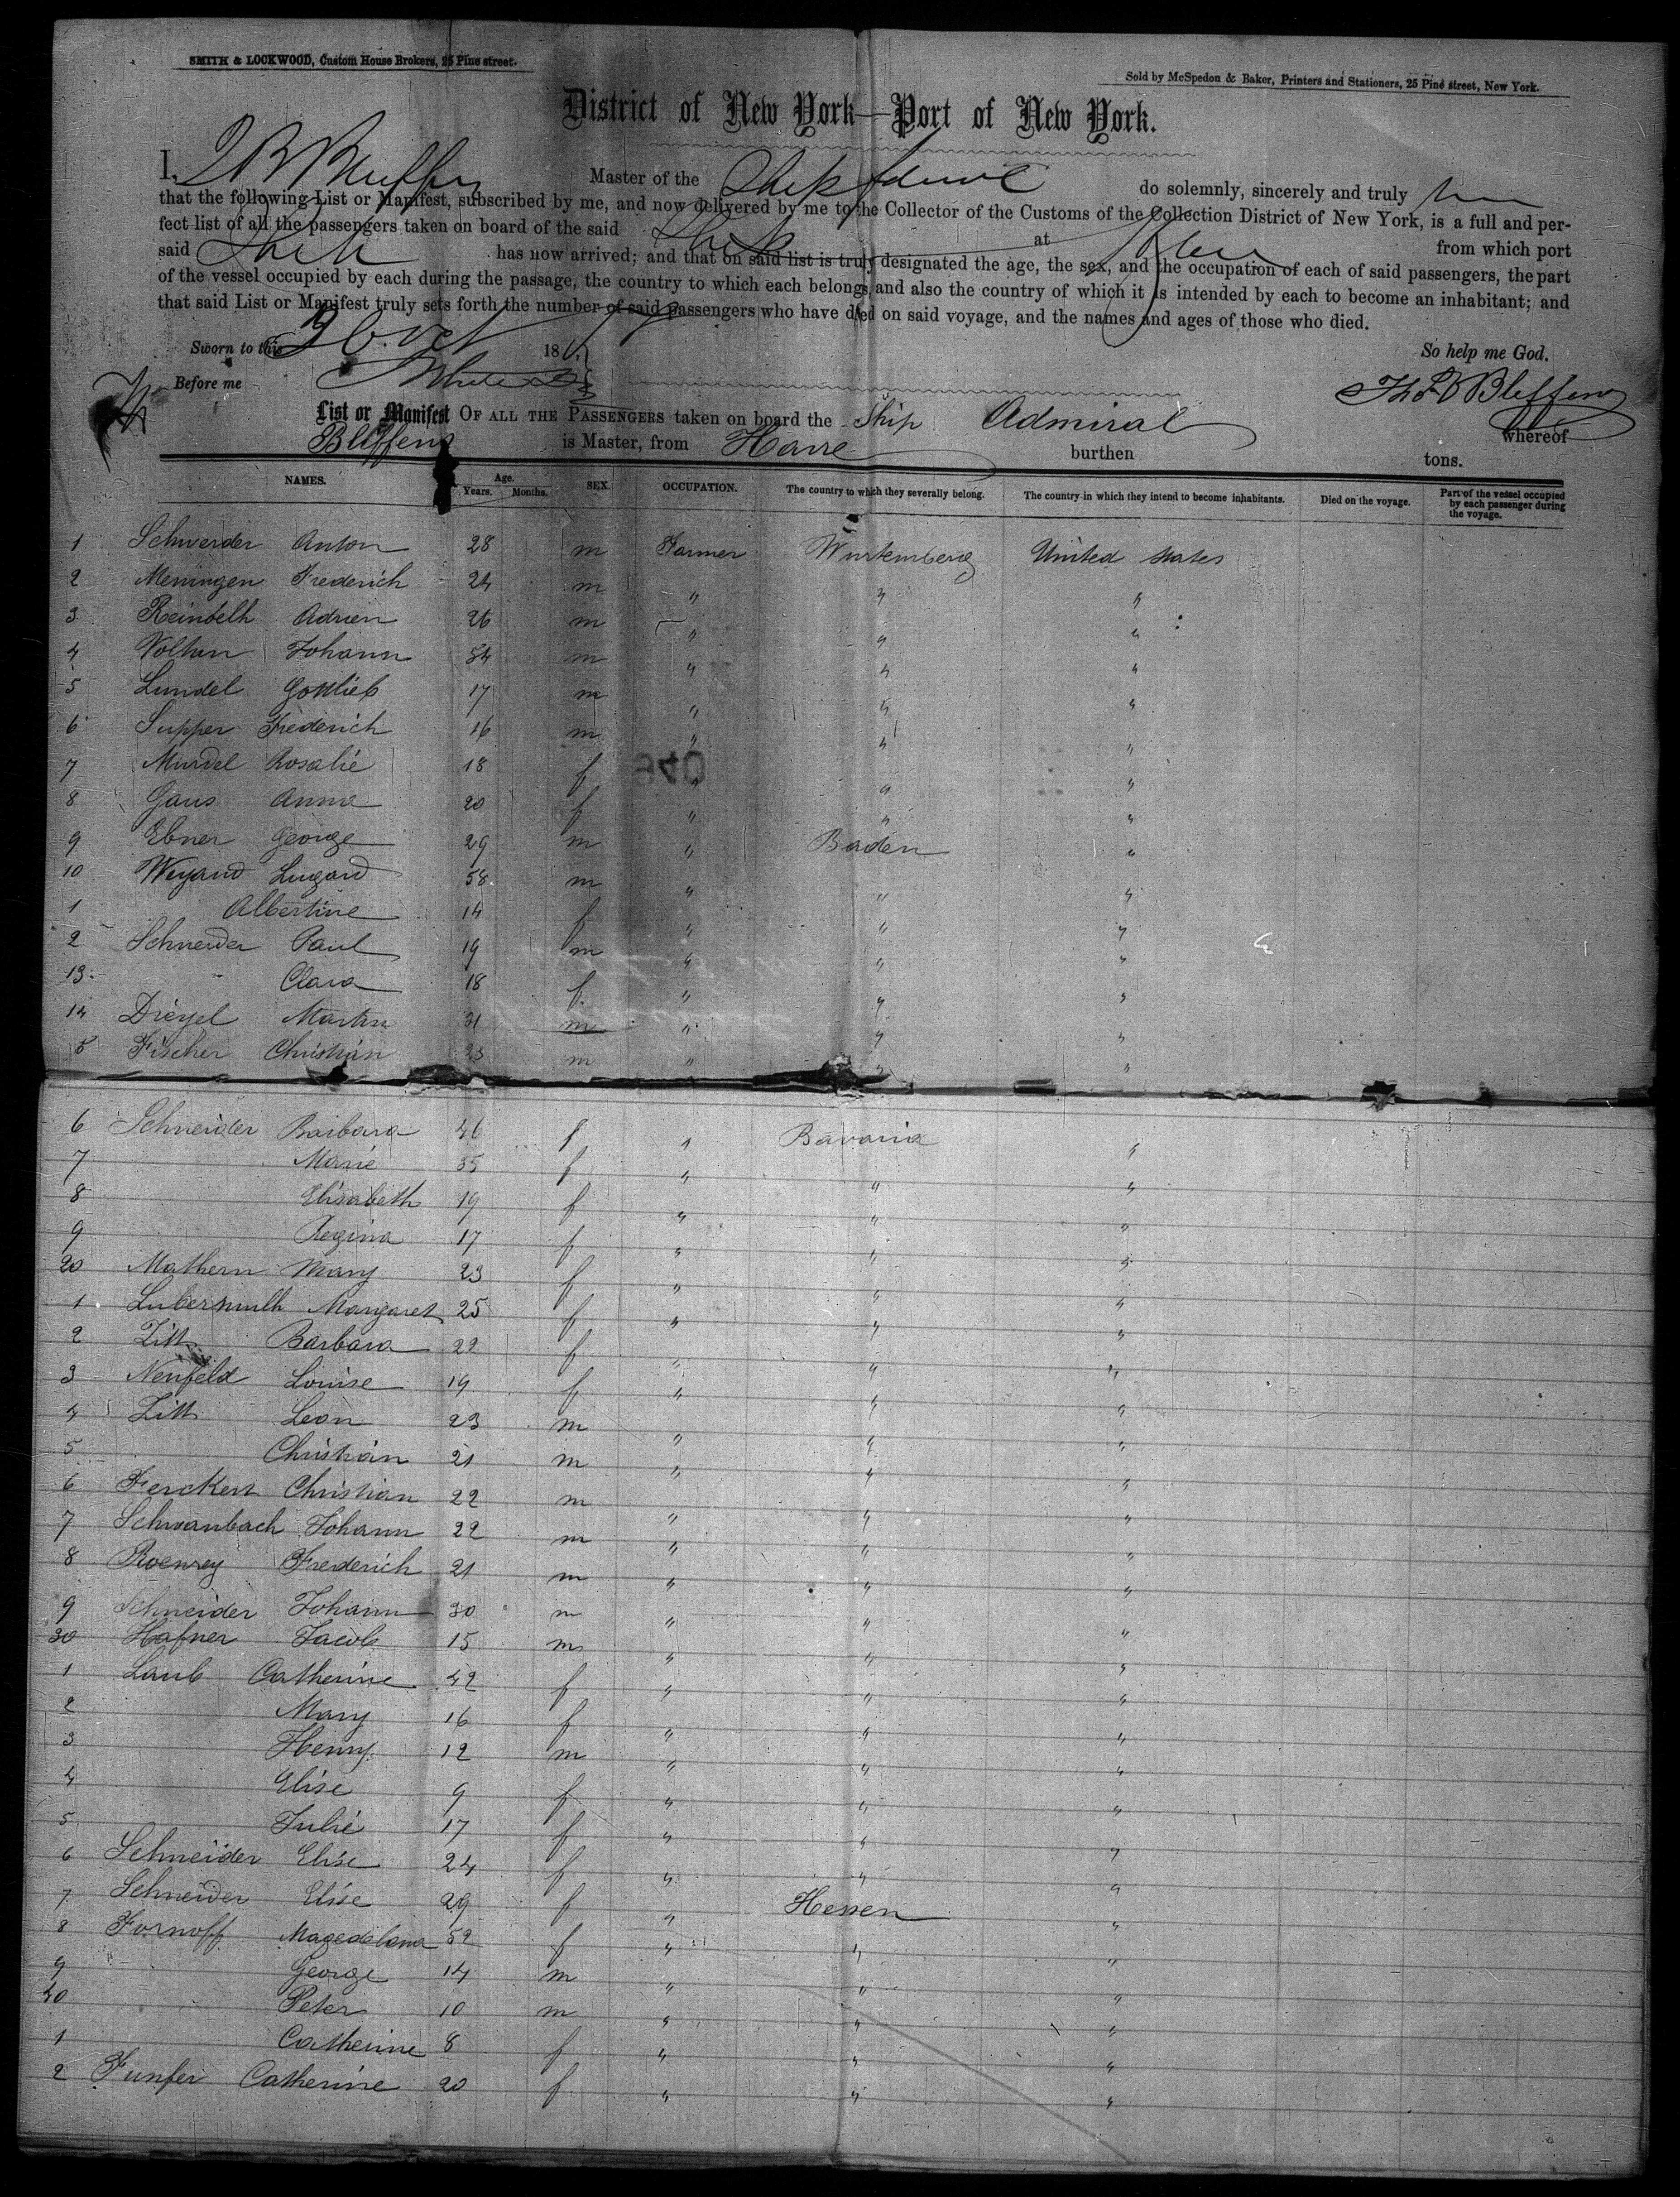 SMITH & LOCKWOOD, Custom House Brokers, 25 Pine street.
Sold by McSpedon & Baker, Printers and Stationers, 25 Pine street, New York.
District of New York—Port of New York.
I, Master of the Ship do solemnly, sincerely and truly
that the following List or Manifest, subscribed by me, and now delivered by me to the Collector of the Customs of the Collection District of New York, is a full and per-
fect list of all the passengers taken on board of the said Ship at from which port
said Ship has now arrived; and that on said list is truly designated the age, the sex, and the occupation of each of said passengers, the part
of the vessel occupied by each during the passage, the country to which each belongs, and also the country of which it is intended by each to become an inhabitant; and
that said List or Manifest truly sets forth the number of said passengers who have died on said voyage, and the names and ages of those who died.
Sworn to this Oct 186 So help me God.
Before me
List or Manifest OF ALL THE PASSENGERS taken on board the Ship Admiral whereof
Bliffens is Master, from Havre burthen tons.
NAMES. Age. Years. Months. SEX. OCCUPATION. The country to which they severally belong. The country in which they intend to become inhabitants. Died on the voyage. Part of the vessel occupied by each passenger during the voyage.
1 Schwerder Anton 28 m Farmer Wurtemberg United States
2 Meningen Frederich 24 m " " "
3 Reinbelh Adrien 26 m " " "
4 Voltan Johann 54 m " " "
5 Lundel Gottlieb 17 m " " "
6 Supper Frederich 16 m " " "
7 Mindel Rosalie 18 f " " "
940
8 Gaus Anna 20 f " " "
9 Ebner George 29 m " Baden "
10 Weyand Lugard 58 m " " "
1 Albertine 14 f " " "
2 Schneider Paul 19 m " " "
13 Clara 18 f " " "
14 Dieyel Martin 31 m " " "
5 Fischer Christian 23 m " " "
6 Schneider Barbara 46 f " Bavaria "
7 Marie 35 f " " "
8 Elisabeth 19 f " " "
9 Regina 17 f " " "
20 Mathern Mary 23 f " " "
1 Lubermulh Margaret 25 f " " "
2 Zitt Barbara 22 f " " "
3 Neufeld Louise 19 f " " "
4 Zitt Leon 23 m " " "
5 Christian 21 m " " "
6 Ferckert Christian 22 m " " "
7 Schwanbach Johann 22 m " " "
8 Roenrey Frederich 21 m " " "
9 Schneider Johann 30 m " " "
30 Hafner Jacob 15 m " " "
1 Laub Catherine 42 f " " "
2 Mary 16 f " " "
3 Henry 12 m " " "
4 Elise 9 f " " "
5 Julie 17 f " " "
6 Schneider Elise 24 f " " "
7 Schneider Elise 29 f " Hessen "
8 Fornoff Magedalena 52 f " " "
9 George 14 m " " "
40 Peter 10 m " " "
1 Catherine 8 f " " "
2 Funfer Catherine 20 f " " "